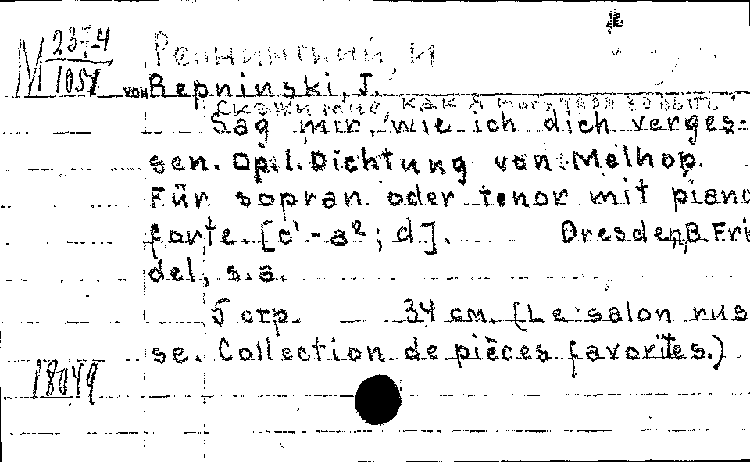 M 237-4
1051
Репнинский, И
von Repninski, J.
Скажи мне, как я могу тебя забыть
Sag mir, wie ich dich verges-
sen. Op.1. Dichtung von Melhop.
Für sopran oder tenor mit piano
forte [c¹-a²; d]. Dresden, B. Frie
del, s.a.
5 стр. 34 см. (Le salon rus
se. Collection de pièces favorites.)
18049